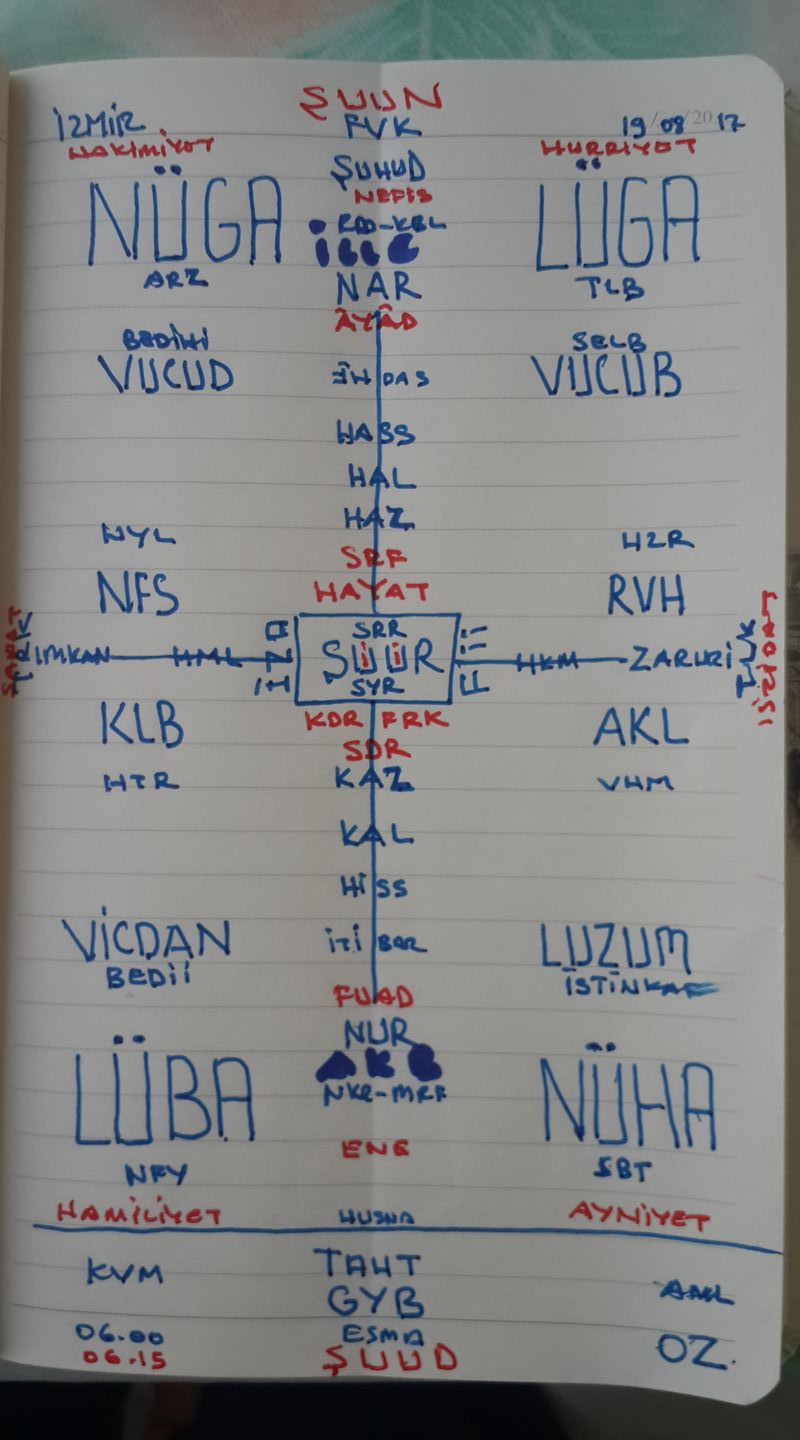 ŞUUN
İZMİR FVK 19/08/2017
HAKİMİYET HURRİYET
ŞUHUD
NEFİS
NÜGA RDD-KBL LÜGA
İLLG
ARZ NAR TLB
ÂYÂD
BEDİHİ SELB
VUCUD DAS VUCUB
HASS
HAL
HAZ
NYL HZR
SRF
NFS HAYAT RVH
SRR
IMKAN HML ŞUUR HKM ZARURİ
SYR
KDR FRK
KLB AKL
SDR
HTR KAZ VHM
KAL
HİSS
VİCDAN İTİBAR LUZUM
BEDİİ İSTİNKAF
FUAD
NUR
LÜBA AKB NÜHA
NKR-MRF
ENE
NFY SBT
HAMİLİYET HUSNA AYNİYET
KVM TAHT
GYB AML
06.00 ESMA
06.15 ŞUUD OZ.